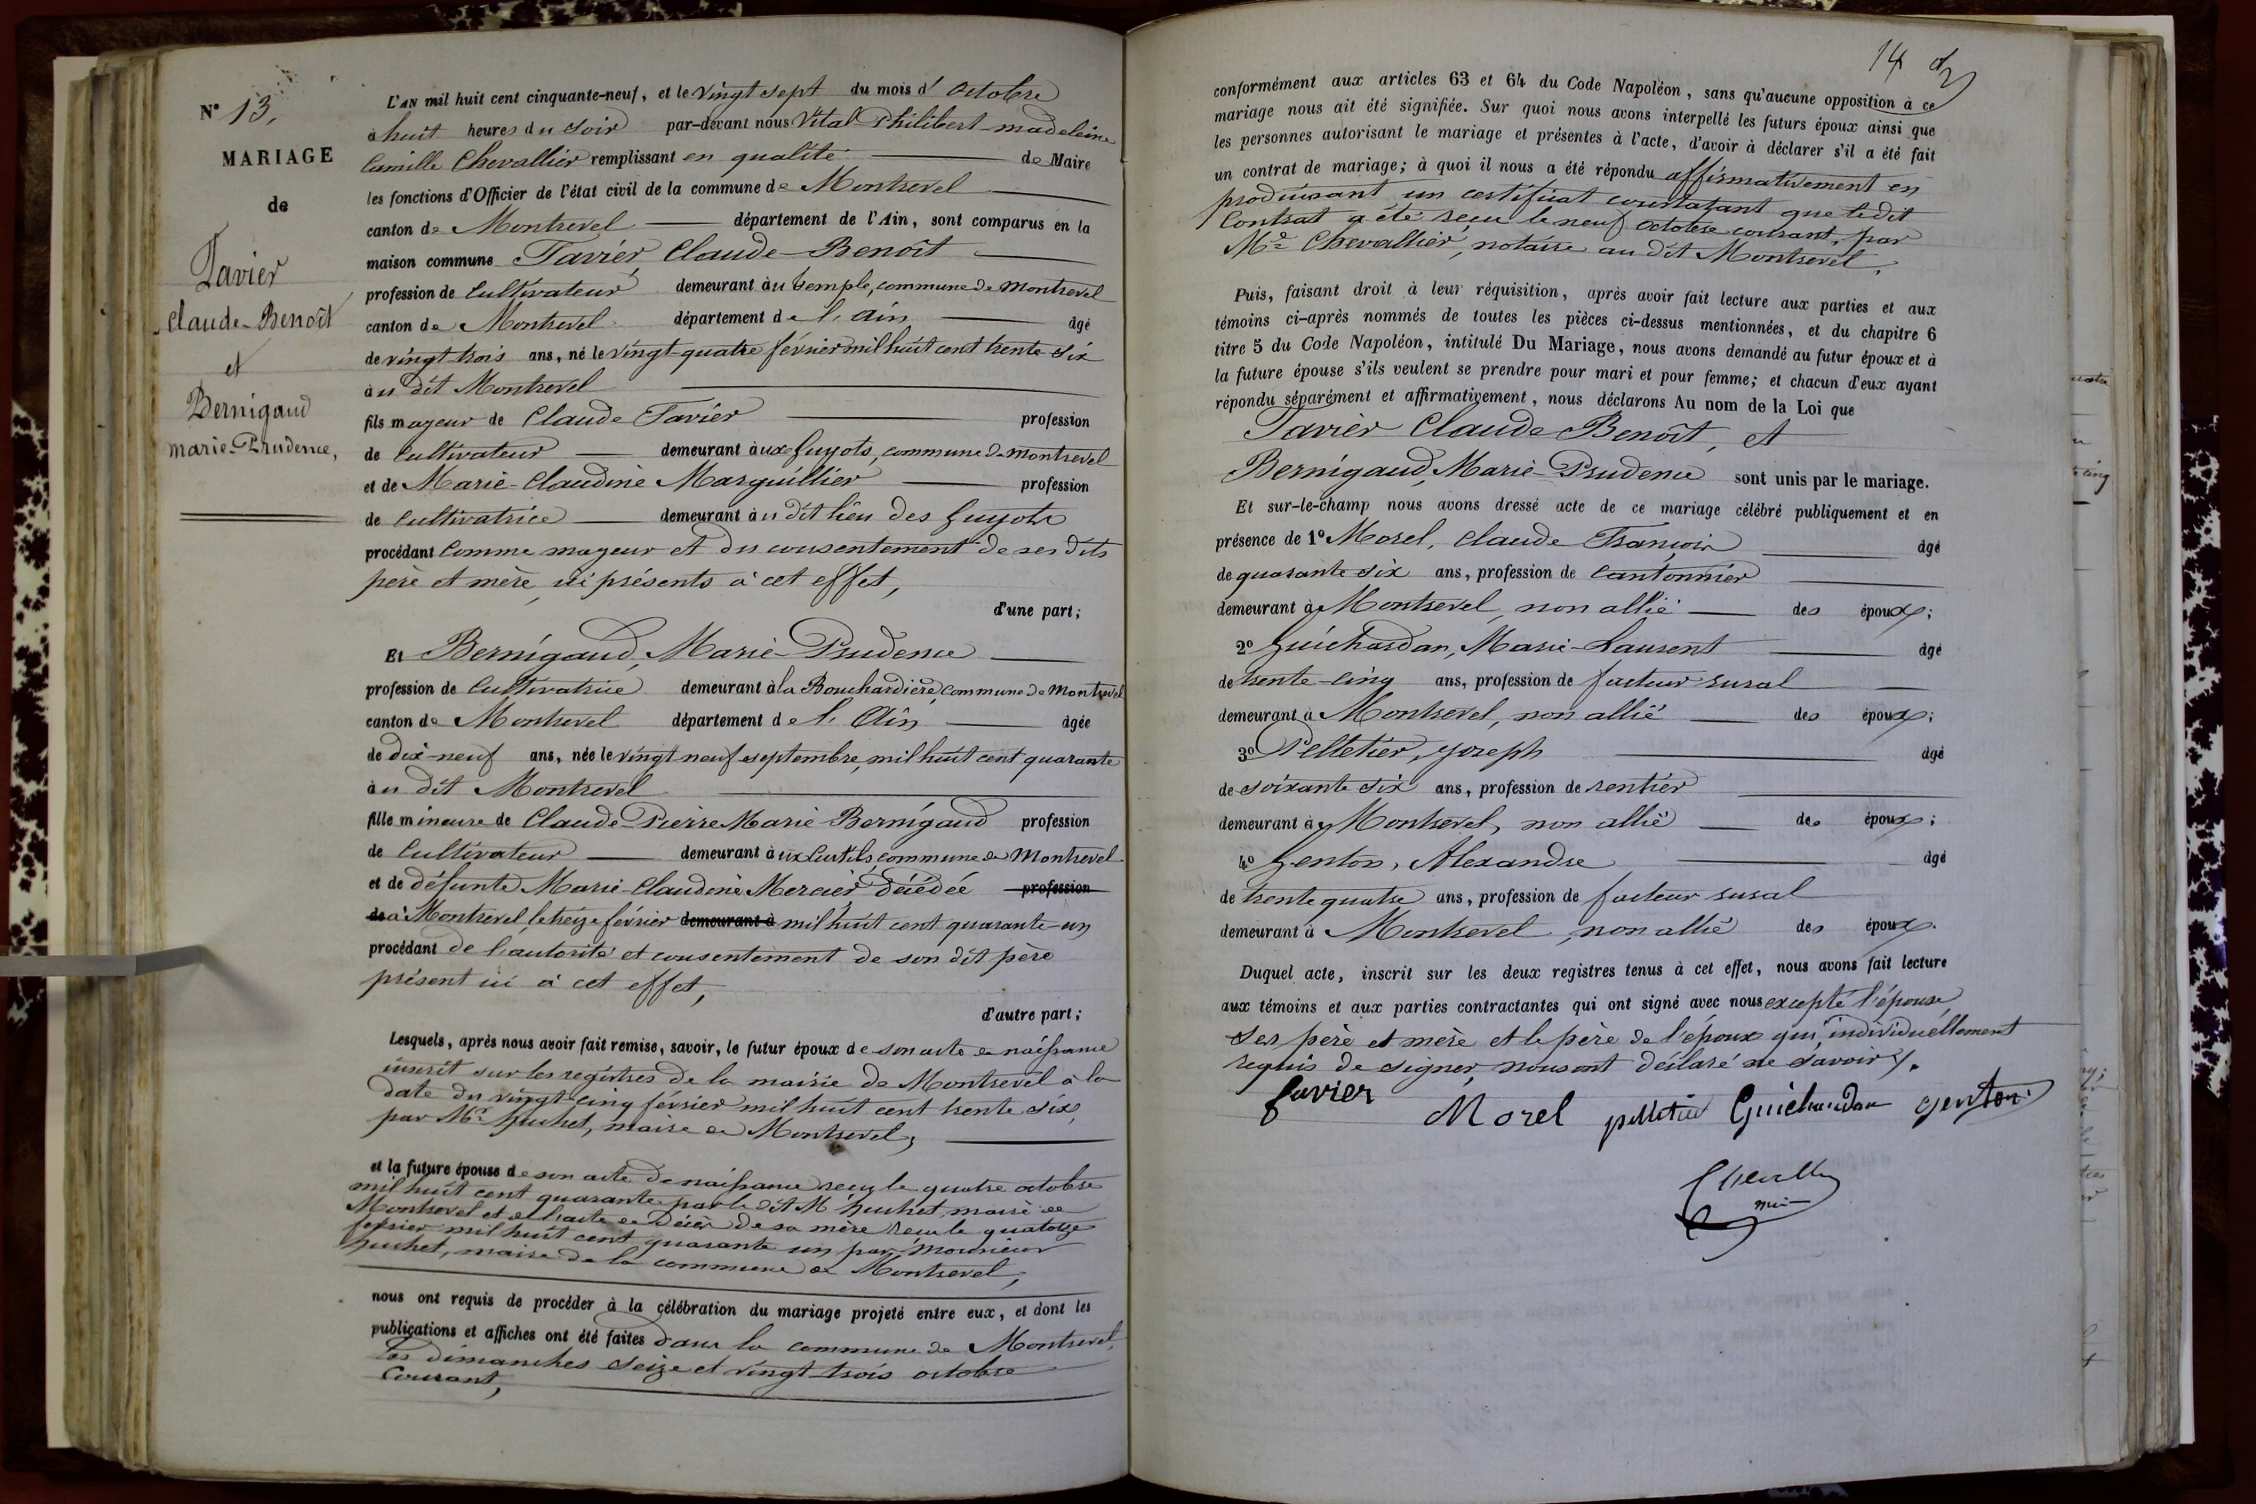 N° 13,
MARIAGE
de
Favier
Claude-Benoît
et
Bernigaud
marie-Prudence,
L'AN mil huit cent cinquante-neuf, et le vingt sept du mois d' octobre
à huit heures du soir par-devant nous Vital Philibert-madeleine
Camille Chevallier remplissant en qualité de Maire
les fonctions d'Officier de l'état civil de la commune de Montrevel
canton de Montrevel département de l'Ain, sont comparus en la
maison commune Favier, Claude-Benoît
profession de cultivateur demeurant au temple, commune de Montrevel
canton de Montrevel département de l'ain âgé
de vingt trois ans, né le vingt-quatre février mil huit cent trente-six
au dit Montrevel
fils mayeur de Claude Favier profession
de cultivateur demeurant aux Guyots, commune de Montrevel
et de Marie-Claudine Marguillier profession
de cultivatrice demeurant au dit lieu des Guyots
procédant comme mayeur et du consentement de ses dits
père et mère ici présents à cet effet,
d'une part;
Et Bernigaud, Marie-Prudence
profession de cultivatrice demeurant à la Bouchardière, commune de Montrevel
canton de Montrevel département de l'Ain âgée
de dix-neuf ans, née le vingt neuf septembre, mil huit cent quarante
au dit Montrevel
fille mineure de Claude-Pierre Marie Bernigaud profession
de cultivateur demeurant aux Curtils commune de Montrevel
et de défunte Marie-Claudine Mercier décédée profession
de à Montrevel, le treize février demeurant à mil huit cent quarante-un
procédant de l'autorité et consentement de son dit père
présent ici à cet effet,
d'autre part;
Lesquels, après nous avoir fait remise, savoir, le futur époux de son acte de naissance
inscrit sur les registres de la mairie de Montrevel à la
date du vingt-cinq février mil huit cent trente six,
par Mr. Huchet, maire de Montrevel,
et la future épouse de son acte de naissance reçu le quatre octobre
mil huit cent quarante par le dit M. huchet, maire de
Montrevel et de l'acte de décès de sa mère reçu le quatorze
février mil huit cent quarante un par Monsieur
huchet, maire de la commune de Montrevel,
nous ont requis de procéder à la célébration du mariage projeté entre eux, et dont les
publications et affiches ont été faites dans la commune de Montrevel,
les dimanches seize et vingt-trois octobre
courant,
14
conformément aux articles 63 et 64 du Code Napoléon, sans qu'aucune opposition à ce
mariage nous ait été signifiée. Sur quoi nous avons interpellé les futurs époux ainsi que
les personnes autorisant le mariage et présentes à l'acte, d'avoir à déclarer s'il a été fait
un contrat de mariage; à quoi il nous a été répondu affirmativement en
produisant un certificat constatant que ledit
Contrat a été reçu le neuf octobre courant, par
Me Chevallier, notaire au dit Montrevel.
Puis, faisant droit à leur réquisition, après avoir fait lecture aux parties et aux
témoins ci-après nommés de toutes les pièces ci-dessus mentionnées, et du chapitre 6
titre 5 du Code Napoléon, intitulé Du Mariage, nous avons demandé au futur époux et à
la future épouse s'ils veulent se prendre pour mari et pour femme; et chacun d'eux ayant
répondu séparément et affirmativement, nous déclarons Au nom de la Loi que
Favier Claude-Benoît, et
Bernigaud, Marie-Prudence sont unis par le mariage.
Et sur-le-champ nous avons dressé acte de ce mariage célébré publiquement et en
présence de 1° Morel, Claude François âgé
de quarante six ans, profession de cantonnier
demeurant à Montrevel, non allié des époux;
2° Guichardan, Marie-Laurent âgé
de trente-cinq ans, profession de facteur rural
demeurant à Montrevel, non allié des époux;
3° Pelletier, Joseph âgé
de soixante six ans, profession de rentier
demeurant à Montrevel, non allié des époux;
4° Genton, Alexandre âgé
de trente quatre ans, profession de facteur rural
demeurant à Montrevel, non allié des époux.
Duquel acte, inscrit sur les deux registres tenus à cet effet, nous avons fait lecture
aux témoins et aux parties contractantes qui ont signé avec nous excepté l'épouse,
ses père et mère et le père de l'époux qui, individuellement
requis de signer, nous ont déclaré ne savoir.
favier Morel pelletier Guichardan genton